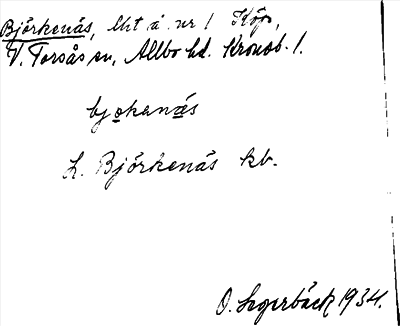 Björkenäs, lht å nr 1 Köp,
V. Torsås sn, Allbo hd. Kronob. l.
bjo̲kenä̲s
L. Björkenäs kb.
O. Segerbäck 1934.